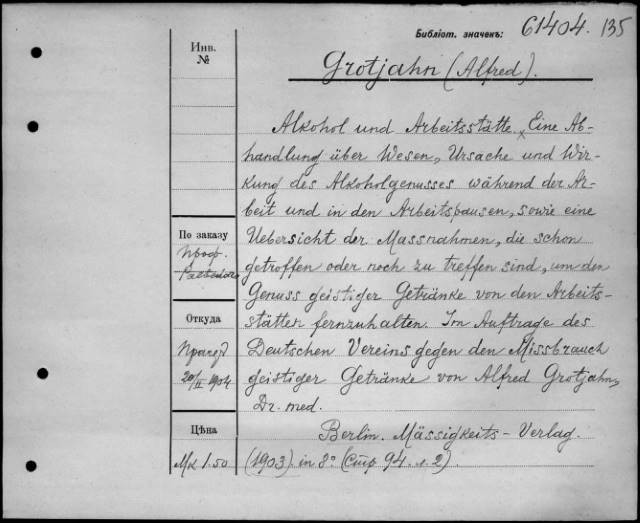 Библіот. значекъ: 61404. 135
Инв.
№
Grotjahn (Alfred).
Alkohol und Arbeitsstätte. Eine Ab-
handlung über Wesen, Ursache und Wir-
kung des Alkoholgenusses während der Ar-
beit und in den Arbeitspausen, sowie eine
Uebersicht der Massnahmen, die schon
getroffen oder noch zu treffen sind, um den
Genuss geistiger Getränke von den Arbeits-
stätten fernzuhalten. Im Auftrage des
Deutschen Vereins gegen den Missbrauch
geistiger Getränke von Alfred Grotjahn,
Dr. med.
Berlin. Mässigkeits-Verlag.
(1903) in 8° (Стр 94 + 2).
По заказу
Проф.
Откуда
20/II 1904
Цѣна
Mk 1.50